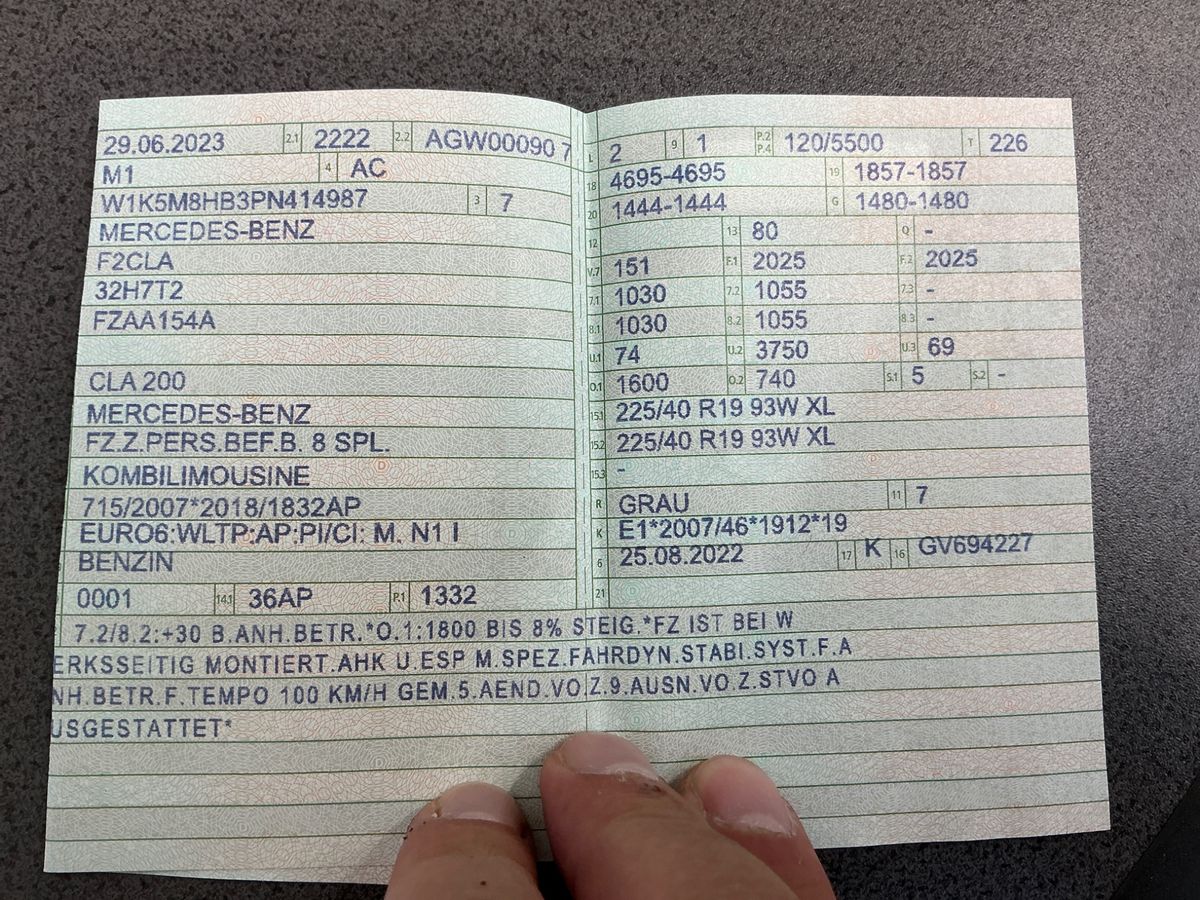 29.06.2023 2.1 2222 2.2 AGW00090 7
M1 4 AC
W1K5M8HB3PN414987 3 7
MERCEDES-BENZ
F2CLA
32H7T2
FZAA154A
CLA 200
MERCEDES-BENZ
FZ.Z.PERS.BEF.B. 8 SPL.
KOMBILIMOUSINE
715/2007*2018/1832AP
EURO6:WLTP:AP:PI/CI: M. N1 I
BENZIN
0001 14.1 36AP P.1 1332
L 2 9 1 P.2 P.4 120/5500 T 226
18 4695-4695 19 1857-1857
20 1444-1444 G 1480-1480
12 13 80 Q -
V.7 151 F.1 2025 F.2 2025
7.1 1030 7.2 1055 7.3 -
8.1 1030 8.2 1055 8.3 -
U.1 74 U.2 3750 U.3 69
O.1 1600 O.2 740 S.1 5 S.2 -
15.1 225/40 R19 93W XL
15.2 225/40 R19 93W XL
15.3 -
R GRAU 11 7
K E1*2007/46*1912*19
6 25.08.2022 17 K 16 GV694227
21
7.2/8.2:+30 B.ANH.BETR.*O.1:1800 BIS 8% STEIG.*FZ IST BEI W
ERKSSEITIG MONTIERT.AHK U.ESP M.SPEZ.FAHRDYN.STABI.SYST.F.A
NH.BETR.F.TEMPO 100 KM/H GEM.5.AEND.VO.Z.9.AUSN.VO.Z.STVO A
USGESTATTET*